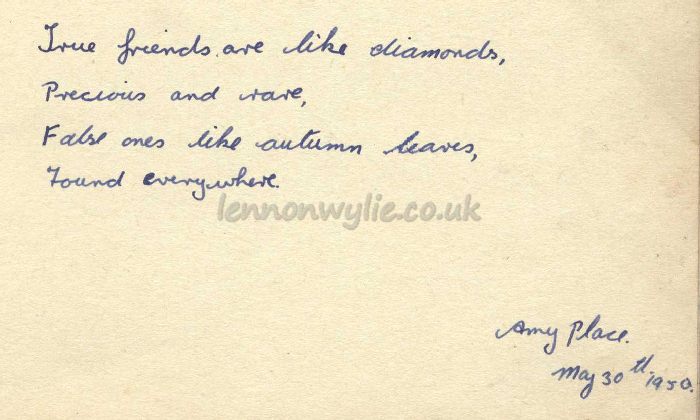 True friends are like diamonds,
Precious and rare,
False ones like autumn leaves,
Found everywhere.
lennonwylie.co.uk
Amy Place.
May 30th 1950.